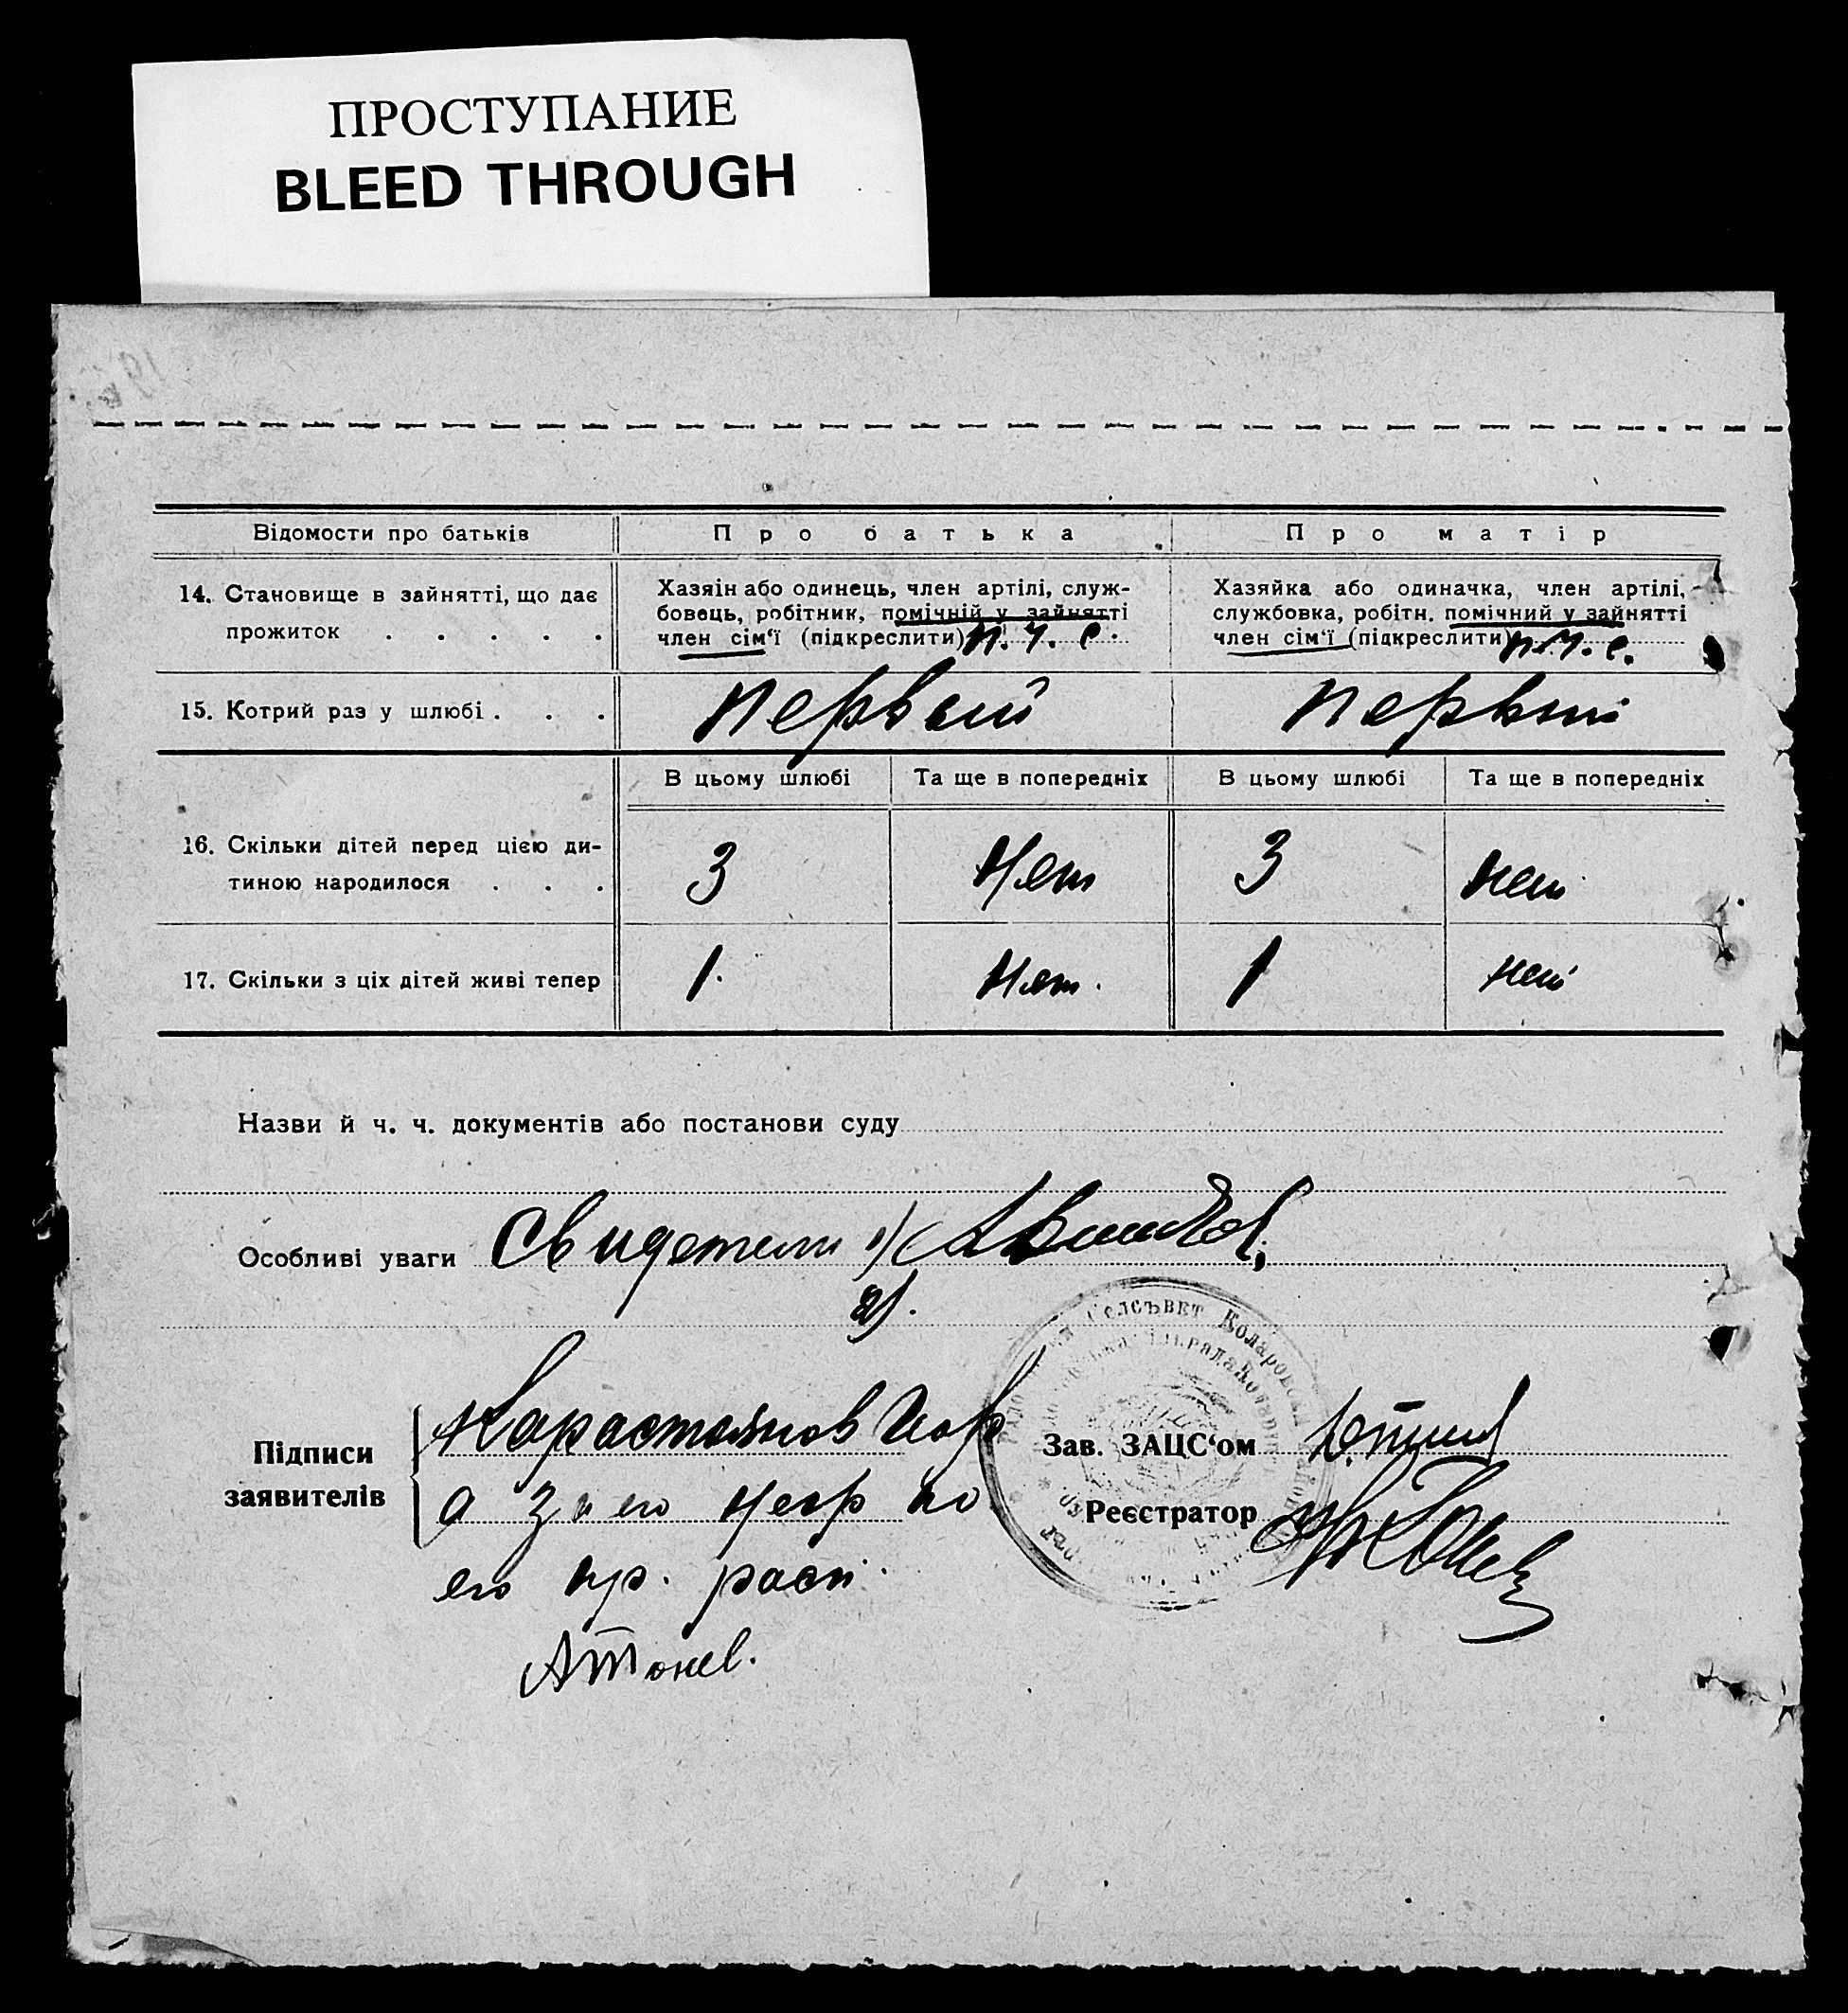 ПРОСТУПАНИЕ
BLEED THROUGH
Відомости про батьків
Про батька
Про матір
14. Становище в зайнятті, що дає
прожиток . . . . .
Хазяін або одинець, член артілі, служ-
бовець, робітник, помічній у зайнятті
член сім‘ї (підкреслити) п. ч. с.
Хазяйка або одиначка, член артілі,
службовка, робітн. помічний у зайнятті
член сім‘ї (підкреслити) п. ч. с.
15. Котрий раз у шлюбі . . .
первый
первый
В цьому шлюбі
Та ще в попередніх
В цьому шлюбі
Та ще в попередніх
16. Скільки дітей перед цією ди-
тиною народилося . . .
3
Нет
3
нет
17. Скільки з ціх дітей живі тепер
1.
Нет.
1
нет
Назви й ч. ч. документів або постанови суду
Особливі уваги Свидетели 1)
2).
Підписи
заявителів
Карастоянов
а за его негр по
его пр. расп.
АТонев.
Селсъвет Коларовски
Зав. ЗАЦС‘ом
Реєстратор